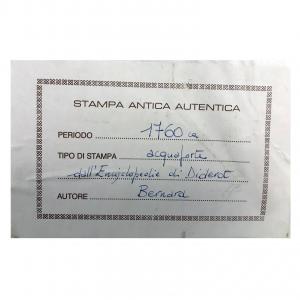 STAMPA ANTICA AUTENTICA
PERIODO 1760 ca
TIPO DI STAMPA acquaforte
dall'Enciclopedia di Diderot
AUTORE Bernard